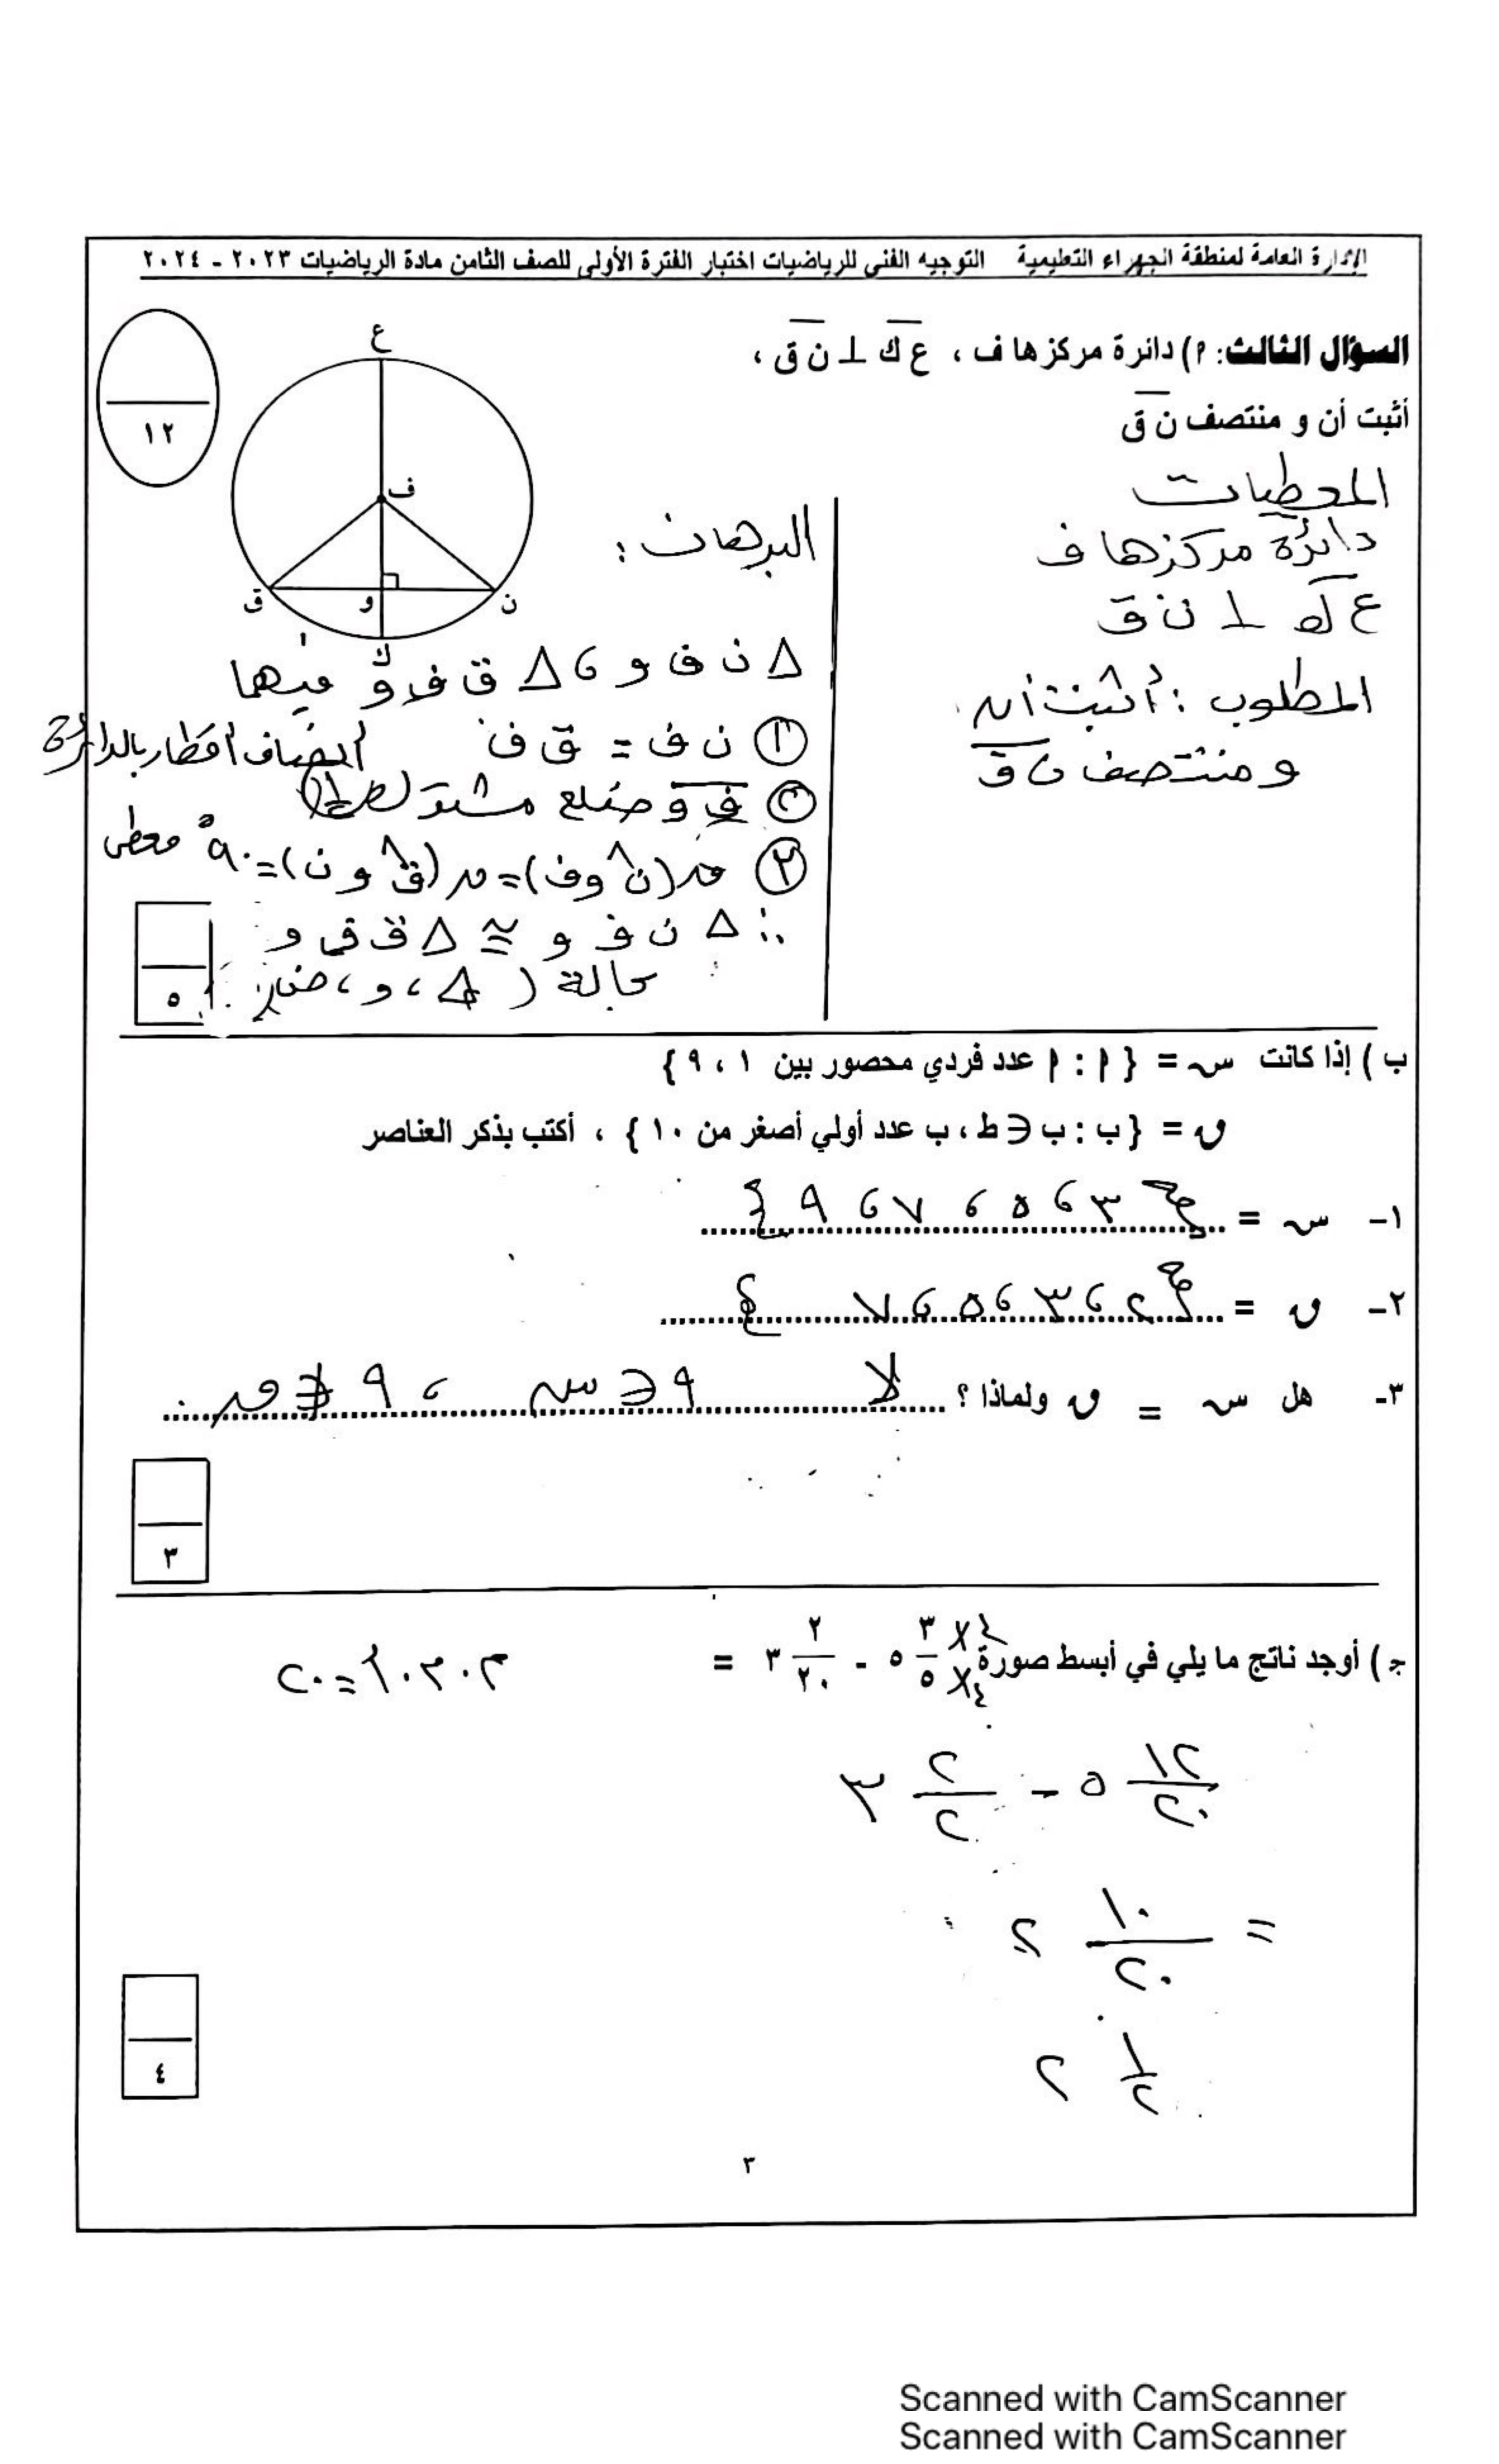 الإدارة العامة لمنطقة الجهراء التعليمية التوجيه الفني للرياضيات اختبار الفترة الأولى للصف الثامن مادة الرياضيات ٢٠٢٣ - ٢٠٢٤
السؤال الثالث: ٩) دائرة مركزها ف ، ع ك ⊥ ن ق ،
أثبت أن و منتصف ن ق
١٢
ع
ف
ق
و
ن
ك
المعطيات
دائرة مركزها ف
ع ك ⊥ ن ق
المطلوب : أثبت أن
و منتصف ن ق
البرهان :
Δ ن ف و ، Δ ق ف و فيهما
① ن ف = ق ف أنصاف أقطار بالدائرة
② ف و ضلع مشترك
③ ق(ن و ف) = ق(ق و ن) = ٩٠° معطى
∴ Δ ن ف و ≅ Δ ق ف و
حالة ( ، و ، ض
٥
ب ) إذا كانت س = { ٩ : ٩ عدد فردي محصور بين ١ ، ٩ }
ص = {ب : ب ∈ ط ، ب عدد أولي أصغر من ١٠ } ، أكتب بذكر العناصر
١- س = { ٣ ، ٥ ، ٧ ، ٩ }
٢- ص = { ٢ ، ٣ ، ٥ ، ٧ }
٣- هل س = ص ولماذا ؟ لا ٩ ∈ س ، ٩ ∉ ص
٣
ج ) أوجد ناتج ما يلي في أبسط صورة ٥ ٣/٥ - ٣ ٢/٢٠ =
×٤
×٤
م.م.أ = ٢٠
٥ ١٢/٢٠ - ٣ ٢/٢٠
= ٢ ١٠/٢٠
٢ ١/٢
٤
٣
Scanned with CamScanner
Scanned with CamScanner